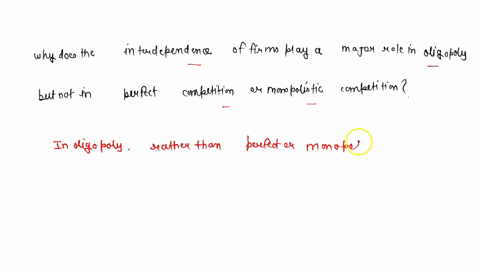 why does the interdependence of firms play a major role in oligopoly
but not in perfect competition or monopolistic competition?
In oligopoly. rather than perfect or monopo